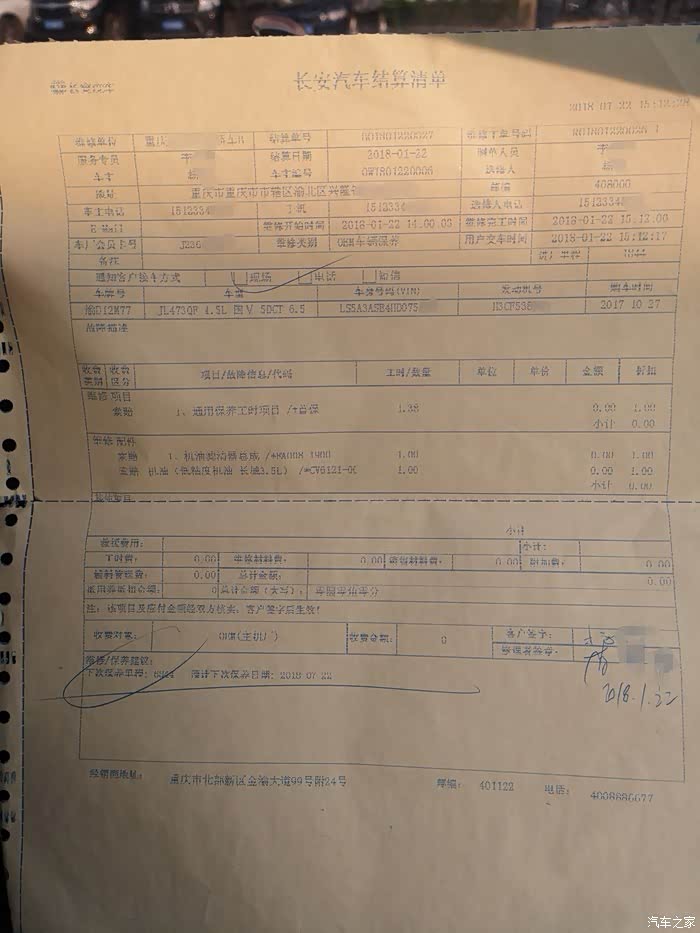 长安汽车
长安汽车结算清单
2018-01-22 15:12:28
维修单位 重庆 结算单号 维修工单号码
服务专员 李 结算日期 2018-01-22 制单人员 李
车主 车主编号 送修人
地址 重庆市重庆市市辖区渝北区兴隆 邮编 408000
车主电话 1512334 手机 1512334 送修人电话 1512334
E-Mail 维修开始时间 2018-01-22 14.00.03 维修完工时间 2018-01-22 15.12.00
车广会员卡号 J236 维修类别 OEM车辆保养 用户交车时间 2018-01-22 15:12:17
备注
通知客户接车方式 现场 电话 短信
车牌号 车型 车架号码(VIN) 发动机号 购车时间
渝D12M77 JL473QF 1.5L 国V 5DCT 6.5 2017 10 27
故障描述
收费类别 收费区分 项目/故障信息/代码 工时/数量 单位 单价 金额 折扣
维修项目
索赔 1、通用保养工时项目 /+首保 1.38 0.00 1.00
小计 0.00
维修配件
索赔 1、机油滤清器总成 1.00 0.00 1.00
索赔 机油（低粘度机油 长城3.5L） 1.00 0.00 1.00
小计 0.00
其他项目
小计
救援费用： 小计：
工时费： 0.00 维修材料费： 0.00 0.00 附加费： 0.00
辅料管理费： 0.00 总计金额： 0.00
0 总计金额（大写）： 零圆零角零分
注：该项目及应付金额经双方核实，客户签字后生效！
收费对象： OEM(主机厂) 收费金额： 0 客户签字：
维修/保养建议：
下次保养里程： 预计下次保养日期：2018 07 22
2018.1.22
经销商地址： 重庆市北部新区金渝大道99号附24号 邮编： 401122 电话： 4008886677
汽车之家